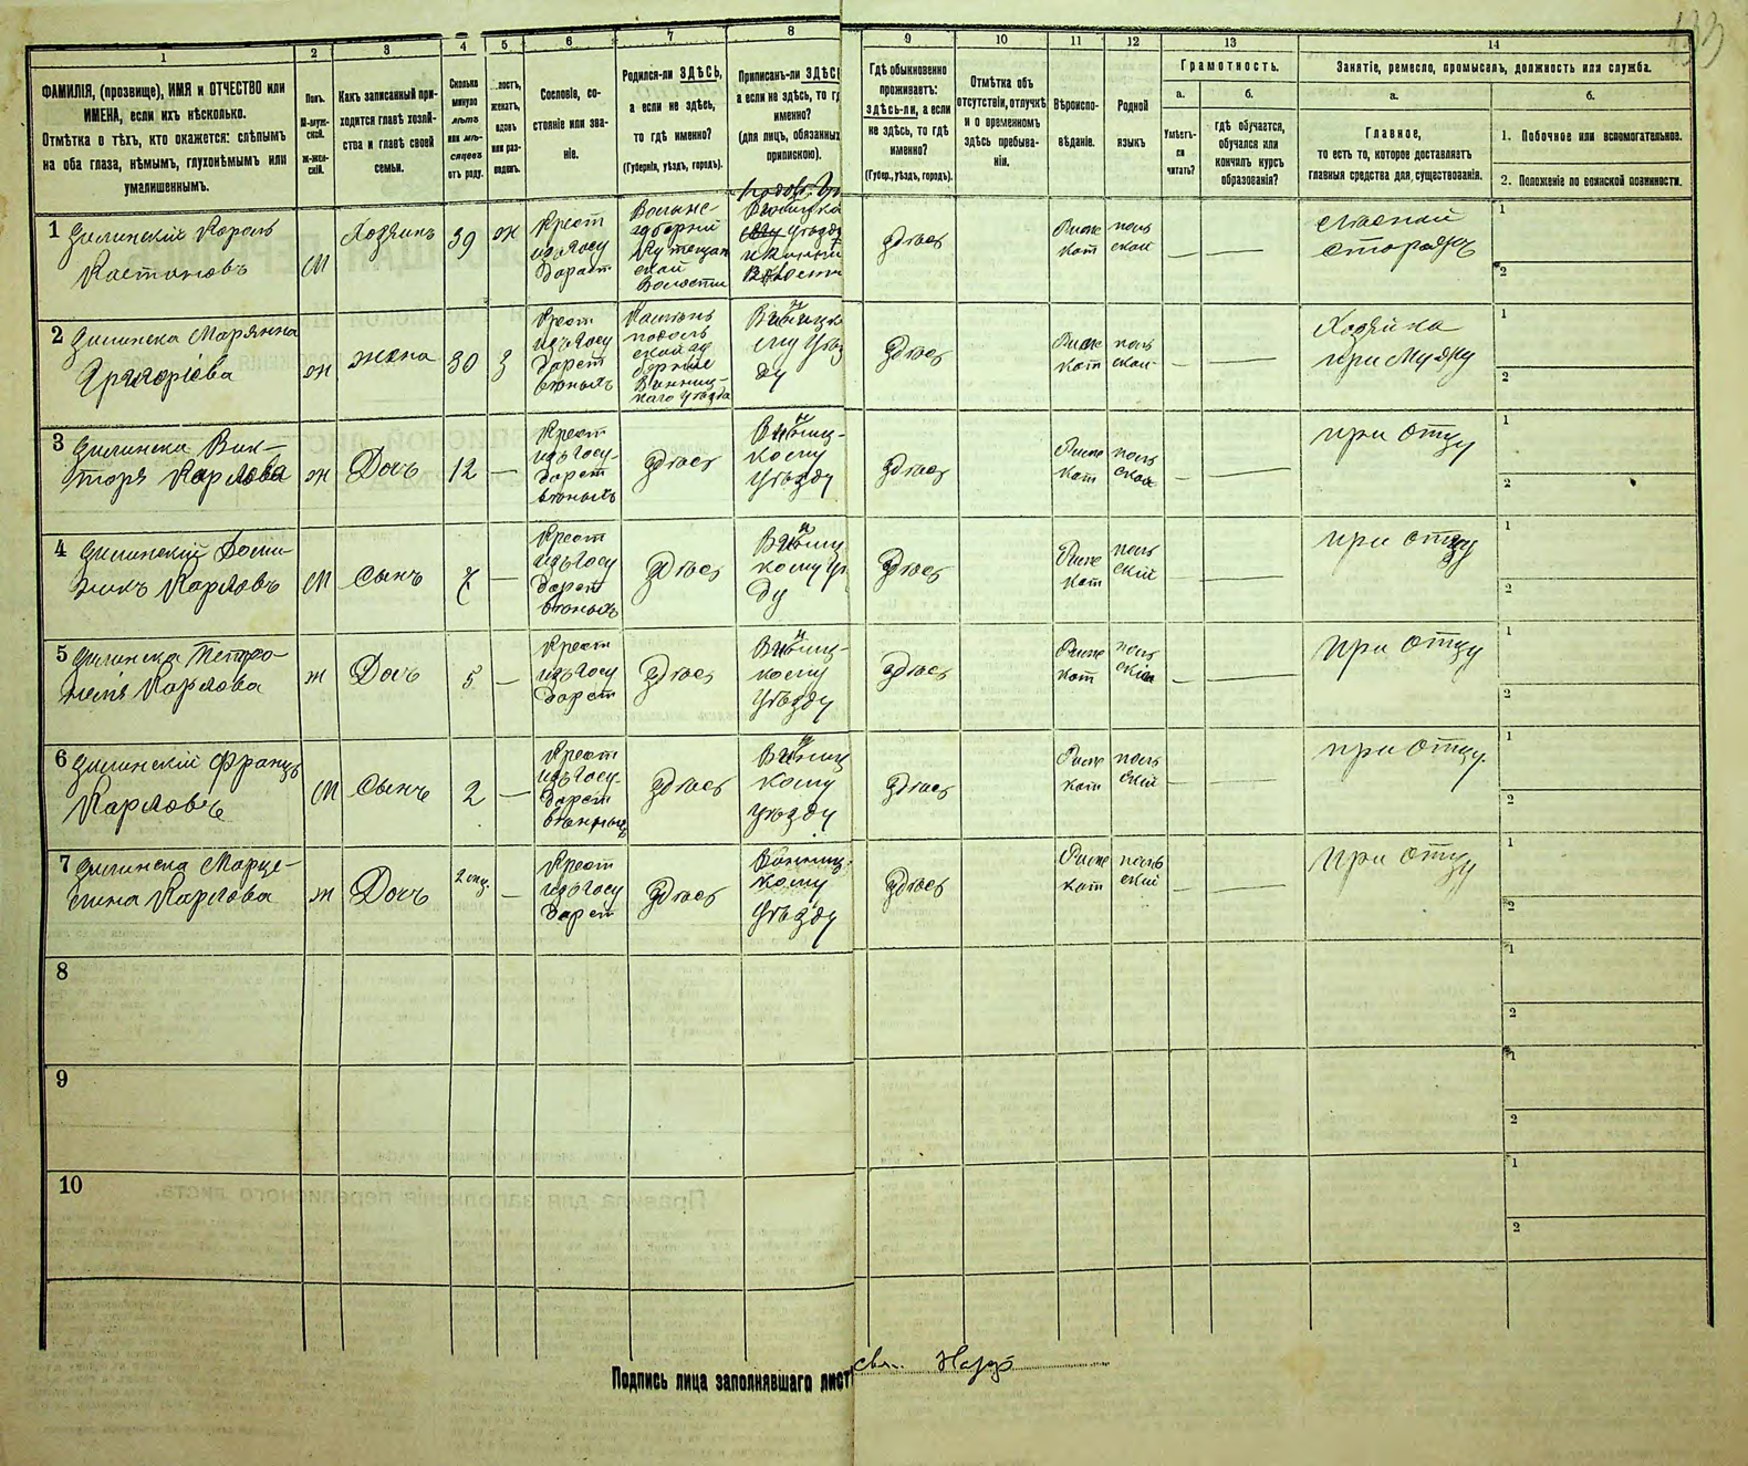 133
1
2
3
4
5
6
7
8
9
10
11
12
13
14
ФАМИЛІЯ, (прозвище), ИМЯ и ОТЧЕСТВО или
ИМЕНА, если ихъ нѣсколько.
Отмѣтка о тѣхъ, кто окажется: слѣпымъ
на оба глаза, нѣмымъ, глухонѣмымъ или
умалишеннымъ.
Полъ.
М-муж-
ской.
ж-жен-
скій.
Какъ записанный при-
ходится главѣ хозяй-
ства и главѣ своей
семьи.
Сколько
минуло
лѣтъ
или мѣ-
сяцевъ
отъ роду.
лостъ,
женатъ,
вдовъ
или раз-
веденъ.
Сословіе, со-
стояніе или зва-
ніе.
Родился-ли ЗДѢСЬ,
а если не здѣсь,
то гдѣ именно?
(Губернія, уѣздъ, городъ).
Приписанъ-ли ЗДѢС
а если не здѣсь, то г
именно?
(для лицъ, обязанных
припискою).
Гдѣ обыкновенно
проживаетъ:
здѣсь-ли, а если
не здѣсь, то гдѣ
именно?
(Губер., уѣздъ, городъ).
Отмѣтка объ
отсутствіи, отлучкѣ
и о временномъ
здѣсь пребыва-
ніи.
Вѣроиспо-
вѣданіе.
Родной
языкъ
Грамотность.
а.
Умѣетъ-
ли
читать?
б.
гдѣ обучается,
обучался или
кончилъ курсъ
образованія?
Занятіе, ремесло, промыселъ, должность или служба.
а.
Главное,
то есть то, которое доставляетъ
главныя средства для существованія.
б.
1. Побочное или вспомогательное.
2. Положеніе по воинской повинности.
1 Зилинскій Кароль
М
Хозяинъ
39
ж
Крест
изъ госу
дарст
Волынс-
губерній
волости
здѣсь
Римс
кат
поль
скій
Лѣсной
сторожъ
1
2
2 Зилинска Марянна
Григоріева
ж
жена
30
З
Крест
изъ госу
дарст
венныхъ
подоль
ской гу
берніи
Винниц-
каго уѣзда
здѣсь
Римс
кат
поль
скій
Хозяйка
при мужу
1
2
3 Зилинска Вик-
торя Карлова
ж
Дочь
12
—
Крест
изъ госу-
дарст
венныхъ
здѣсь
Винниц-
кому
уѣзду
здѣсь
Римс
кат
поль
ской
при отцу
1
2
4 Зилинскій Доми-
никъ Карловъ
М
сынъ
7
—
Крест
изъ госу
дарст
венныхъ
здѣсь
Винниц
кому уѣ
ду
здѣсь
Римс
кат
поль
скій
при отцу
1
2
5 Зилинска Петро-
неля Карлова
ж
Дочь
5
—
Крест
изъ госу
дарст
здѣсь
Винниц-
кому
уѣзду
здѣсь
Римс
кат
поль
скій
при отцу
1
2
6 Зилинскій Францъ
Карловъ
М
сынъ
2
—
Крест
изъ госу-
дарст
венныхъ
здѣсь
Винниц
кому
уѣзду
здѣсь
Римс
кат
поль
скій
при отцу.
1
2
7 Зилинска Марце-
лина Карлова
ж
Дочь
2 мц.
—
Крест
изъ госу
дарст
здѣсь
Винниц-
кому
уѣзду
здѣсь
Римс
кат
поль
скій
при отцу
1
2
8
1
2
9
1
2
10
1
2
Подпись лица заполнявшаго лист